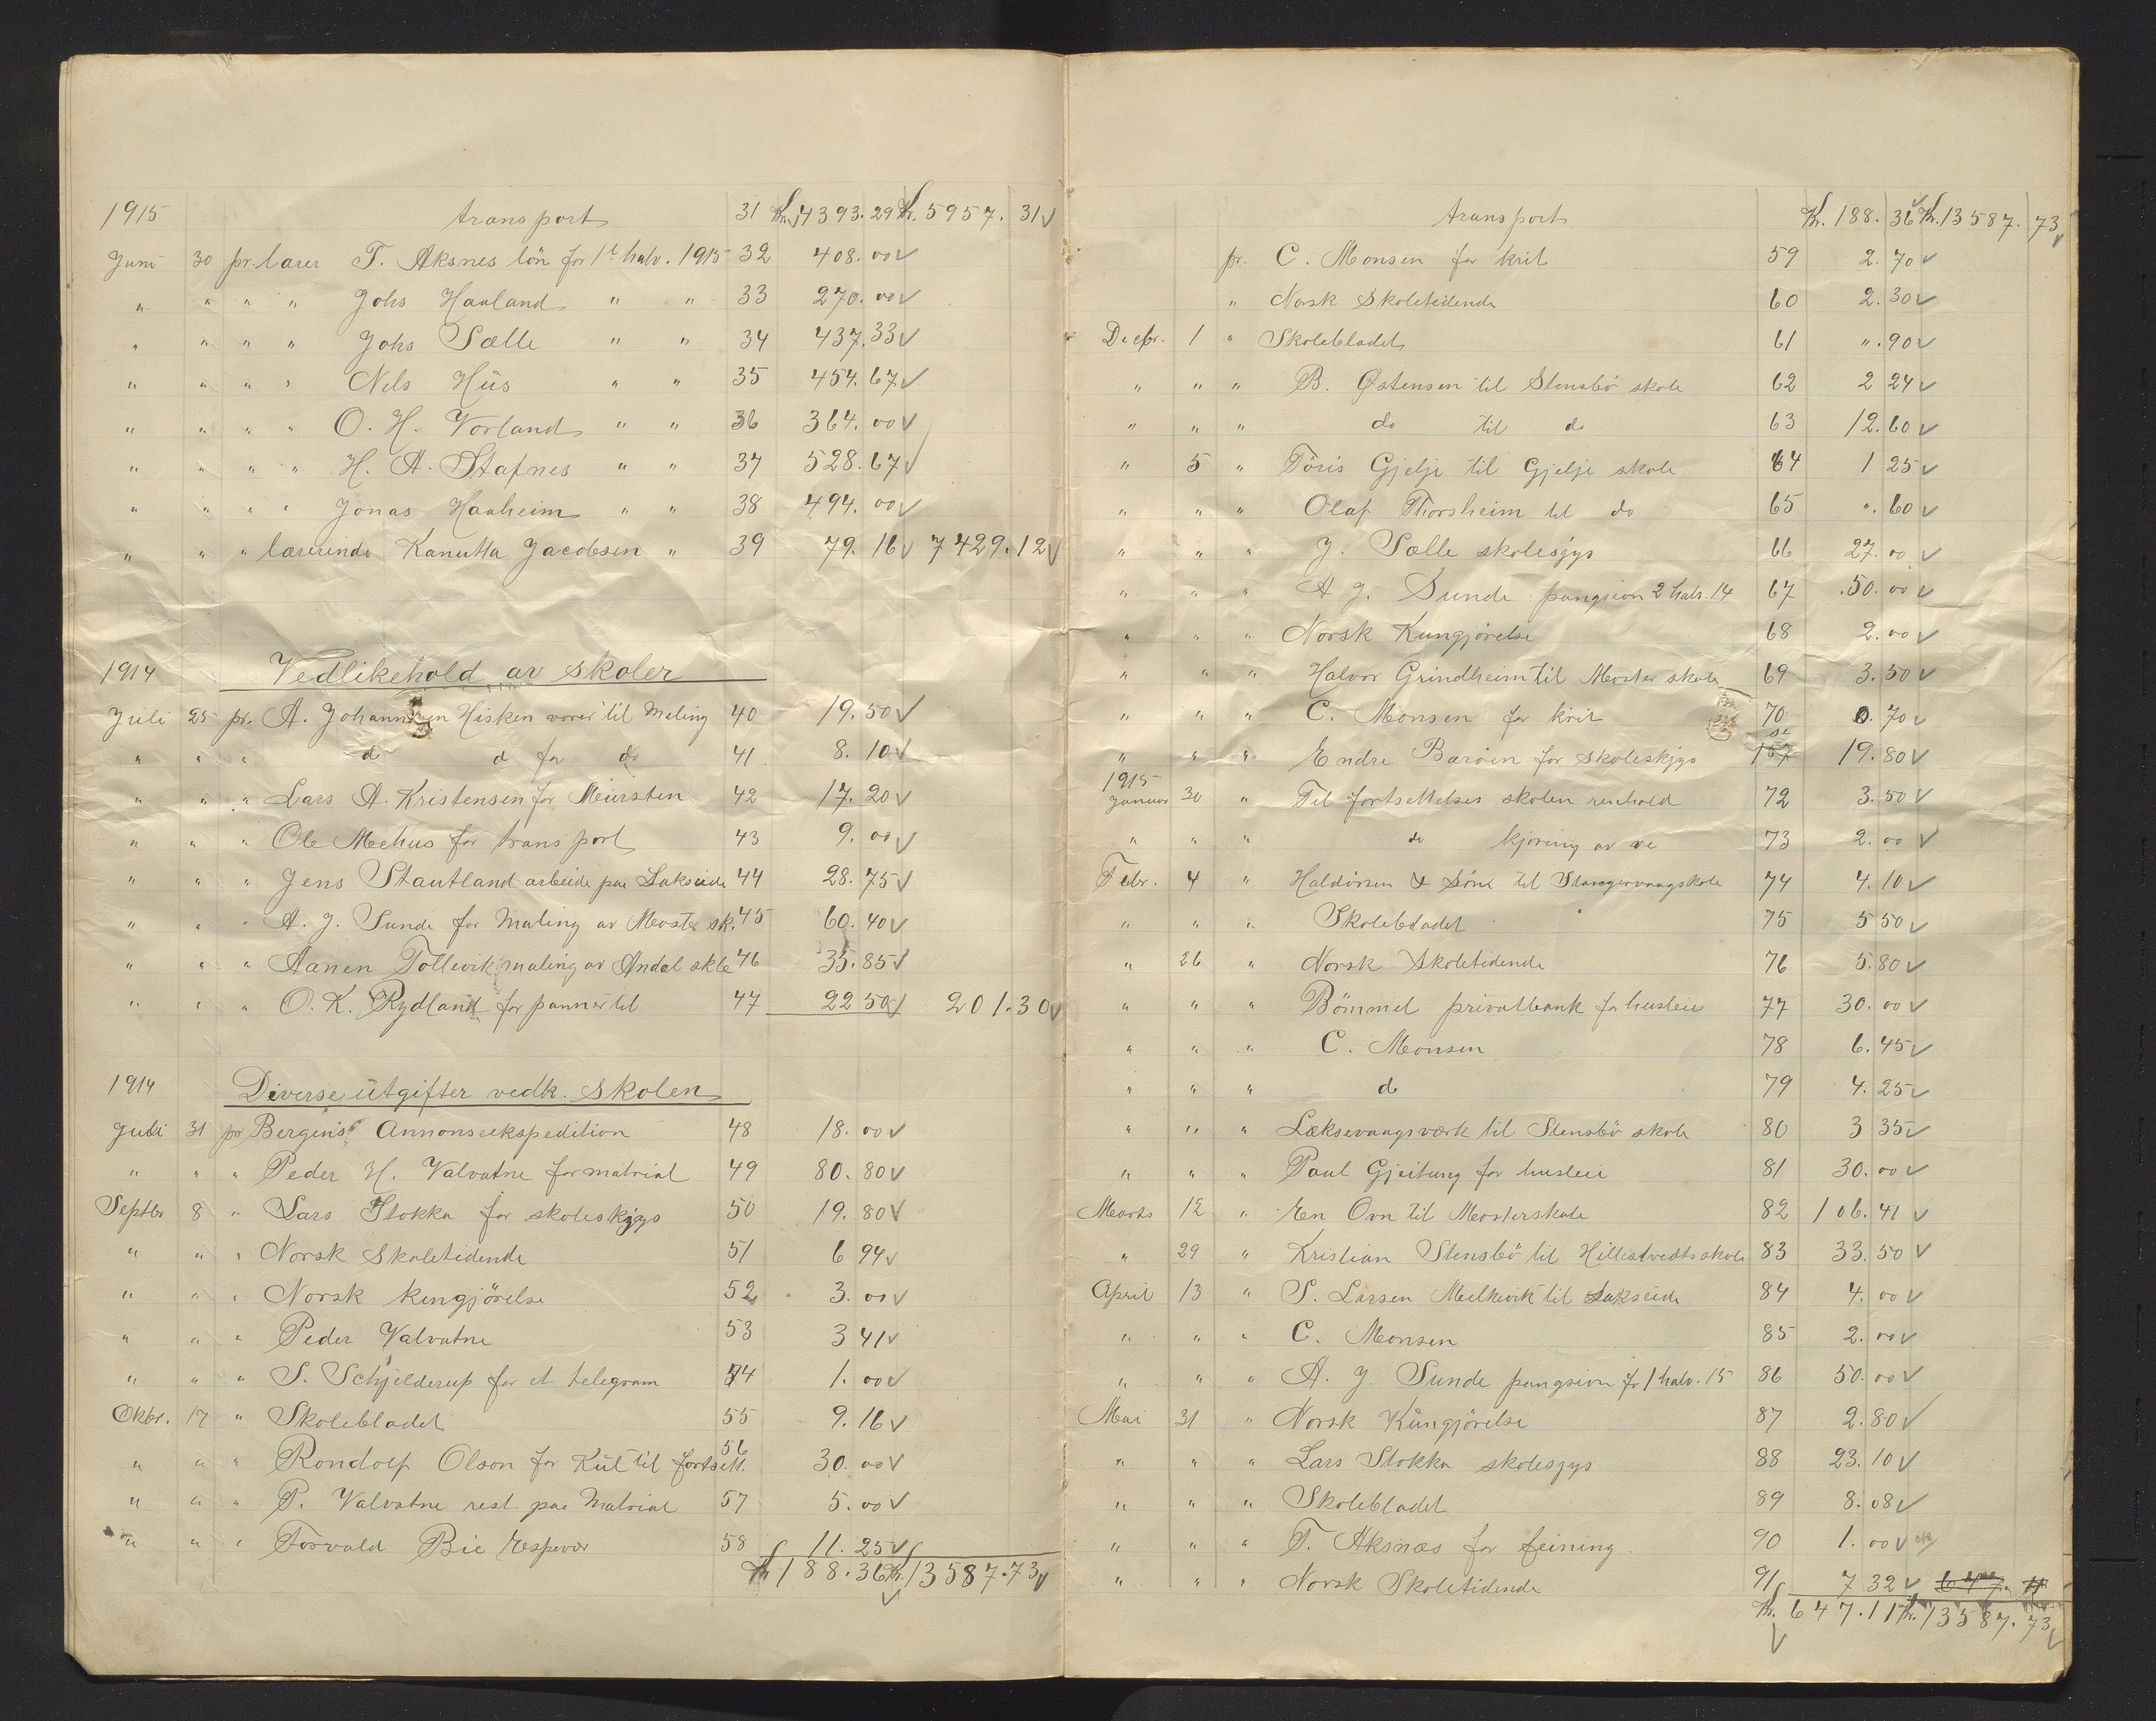 1915 transport 31 Kr. 4393.29 Kr. 5957.31
Juni 30 pr. lærer T. Aksnes lön for 1ste halv. 1915 32 408.00
" " " " Johs Haaland " " 33 270.00
" " " " Johs Sælle " " 34 437.33
" " " " Nils Hüs " " 35 454.67
" " " " O. H. Vorland " " 36 364.00
" " " " H. A. Stafnes " " 37 528.67
" " " " Jonas Haaheim " " 38 494.00
" " " lærerinde Kanutta Jacobsen " 39 79.16 7429.12
1914 Vedlikehold av skoler
Juli 25 pr. A. Johannesen Hisken varer til Meling 40 19.50
" " " d d for do 41 8.10
" " " Lars A. Kristensen for Mürsten 42 17.20
" " " Ole Mehus for transport 43 9.00
" " " Jens Stautland arbeide paa Lakseide 44 28.75
" " " A. J. Sunde for Maling av Moster sk. 45 60.40
" " " Aanen Tollevik maling av Andal skle 46 35.85
" " " O. K. Rydland for panner til 47 22 50 201.30
1914 Diverse ütgifter vedk. skolen
Juli 31 pr Bergens Annonseekspedition 48 18.00
" " " Peder H. Valvatne for matrial 49 80.80
Septbr 8 " Lars Stokka for skoleskjys 50 19.80
" " " Norsk Skoletidende 51 6 94
" " " Norsk kungjörelse 52 3.00
" " " Peder Valvatne 53 3 41
" " " S. Schjelderup for et telegram 54 1.00
Okbr. 17 " Skolebladet 55 9.16
" " " Rondolf Olson for Kül til fortsett. 56 30.00
" " " P. Valvatne rest paa Matrial 57 5.00
" " " Torvald Bie Espevær 58 11.25
Kr 188.36 Kr. 13587.73
transport Kr. 188.36 Kr. 13587.73
pr. C. Monsen for krit 59 2.70
" Norsk Skoletidende 60 2.30
Decbr. 1 " Skolebladet 61 ".90
" " " B. Østensen til Stensbö skole 62 2 24
" " " do til do 63 12.60
" 5 " Töris Gjelje til Gjelje skole 64 1 25
" " " Olaf Thorsheim til do 65 ".60
" " " J. Sælle skolesjys 66 27.00
" " " A J. Sunde pangsion 2 halv. 14 67 50.00
" " " Norsk Kungjörelse 68 2.00
" " " Halvor Grindheim til Moster skole 69 3.50
" " " C. Monsen for krit 70 0.70
" " " Endre Baröen for Skoleskjys 19.80
1915
Januar 30 " Til fortsettelses skolen renhold 72 3.50
" " " do kjöring av ve 73 2.00
Febr. 4 " Haldörsen & Söne til Stangervaagskole 74 4.10
" " " Skolebladet 75 5 50
" 26 " Norsk Skoletidende 76 5.80
" " " Bömmel privatbank for husleie 77 30.00
" " " C. Monsen 78 6.45
" " " do 79 4.25
" " " Læksevaagsværk til Stensbö skole 80 3 35
" " " Paul Gjeitung for husleie 81 30.00
Marts 12 " En Ovn til Mosterskole 82 106.41
" 29 " Kristian Stensbö til Hillestvedtsskole 83 33.50
April 13 " S. Larsen Melkevik til Lakseide 84 4.00
" " " C. Monsen 85 2.00
" " " A. J. Sunde pangsion for 1 halv. 15 86 50.00
Mai 31 " Norsk Küngjörelse 87 2.80
" " " Lars Stokka skolesjys 88 23.10
" " " Skolebladet 89 8.08
" " " T. Aksnæs for feining 90 1.00
" " " Norsk Skoletidende 91 7 32 647 11
Kr. 647.11 Kr. 13587.73